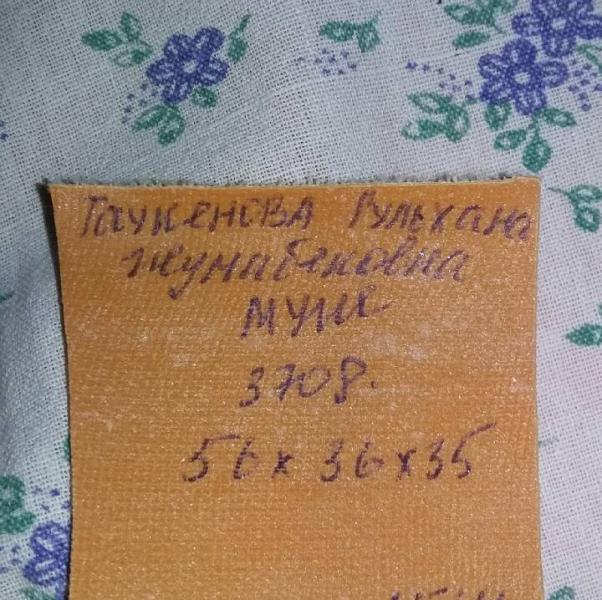 Таукенова Гульхана
Жумабековна
муже
3708.
56 x 36 x 35